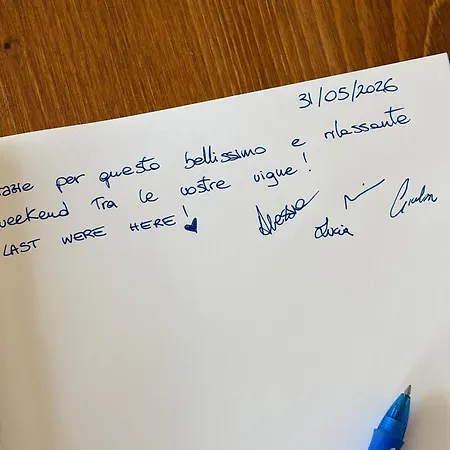 31/05/2026
razie per questo bellissimo e rilassante
weekend Tra le vostre vigne!
LAST WERE HERE! ♥
Alessia
Lucia